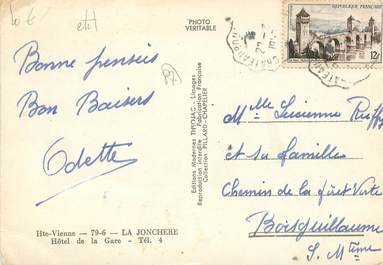 10 €
PHOTO
VERITABLE
Bonne pensées
Bon Baisers
Odette
Hte-Vienne — 79-6 — LA JONCHERE
Hôtel de la Gare - Tél. 4
Editions Modernes THEOJAC - Limoges
Reproduction interdite - Fabrication Française
Collection PILLARD-CHAPELIER
REPUBLIQUE FRANÇAISE
12F
Mlle Lucienne Ruffy
et sa famille
Chemin de la forêt Verte
Boisguillaume
S. Mtime